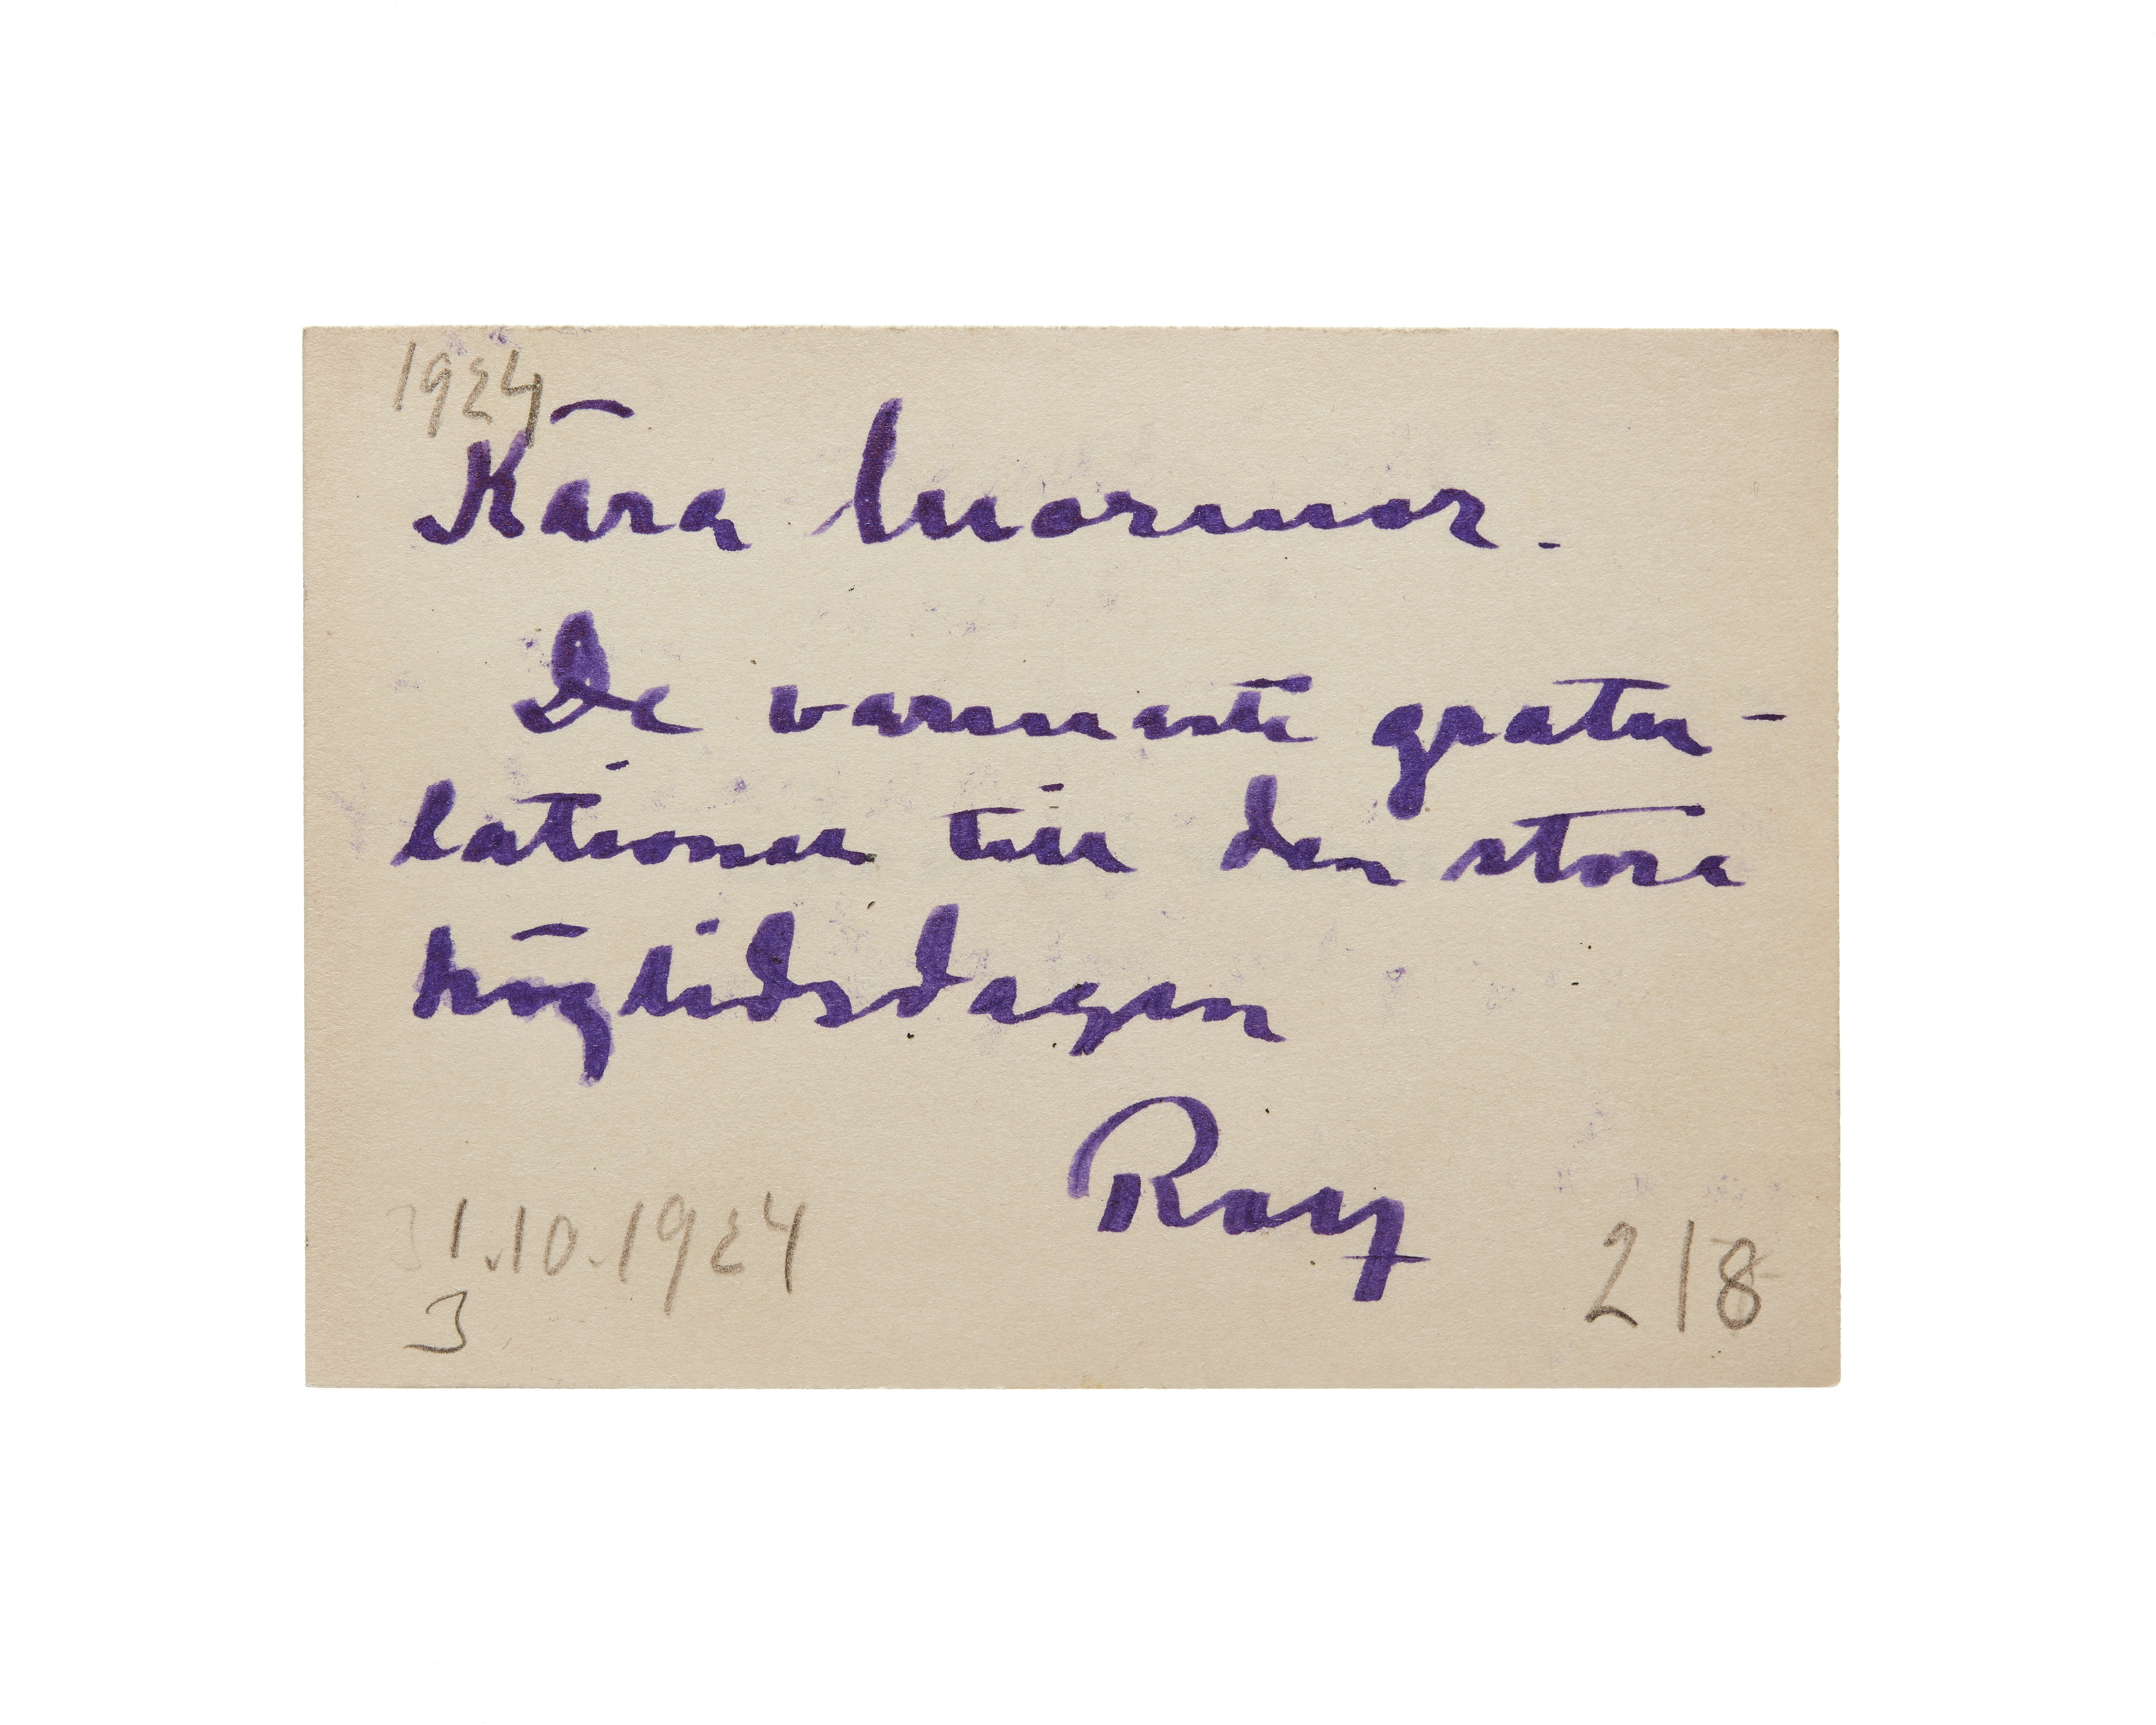 1924
Kära Mormor.
De varmaste gratu-
lationer till den stora
högtidsdagen
Roy
31.10.1924
3
218